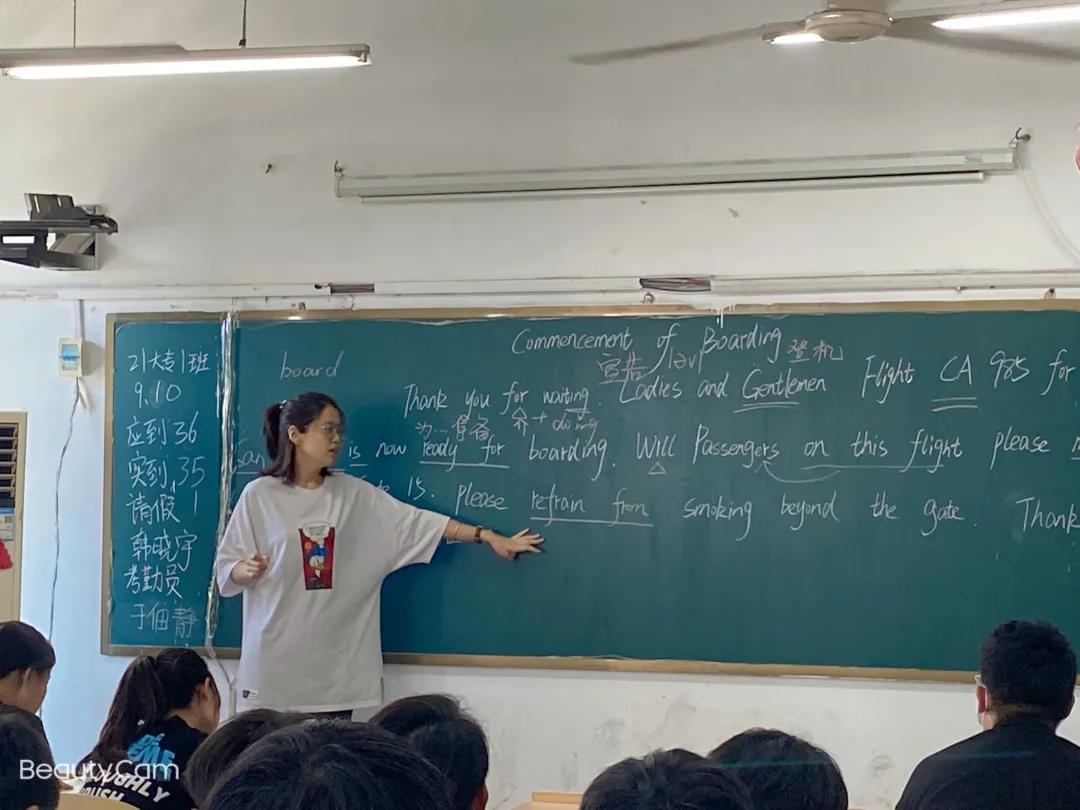 21大专1班
9.10
应到36
实到35
请假1
韩晓宇
考勤员
于佃静
board
Commencement of Boarding 登机
Thank you for waiting. Ladies and Gentlemen Flight CA 985 for
介+doing
is now ready for boarding. Will Passengers on this flight please
15. please refrain from smoking beyond the gate. Thank
BeautyCam